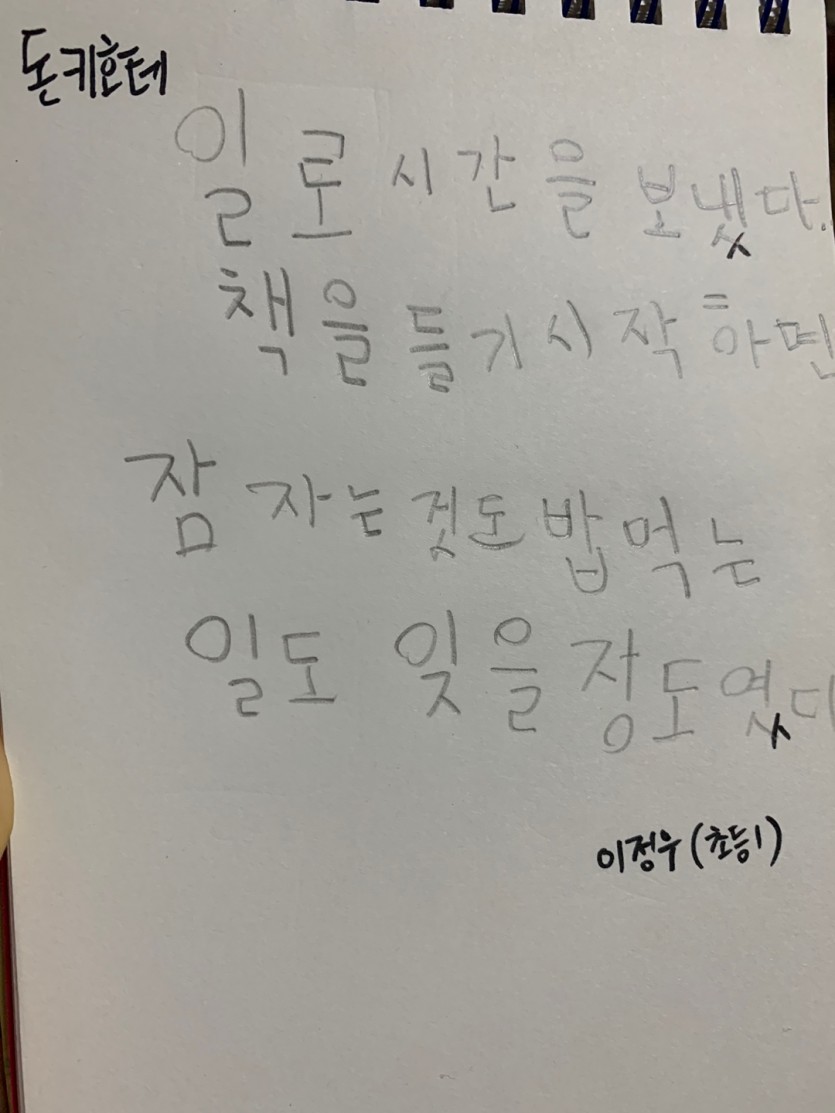 돈키호테
일로 시간을 보냈다.
책을 들기시작하면
잠 자는것도 밥먹는
일도 잊을정도였다
이정우(초등1)